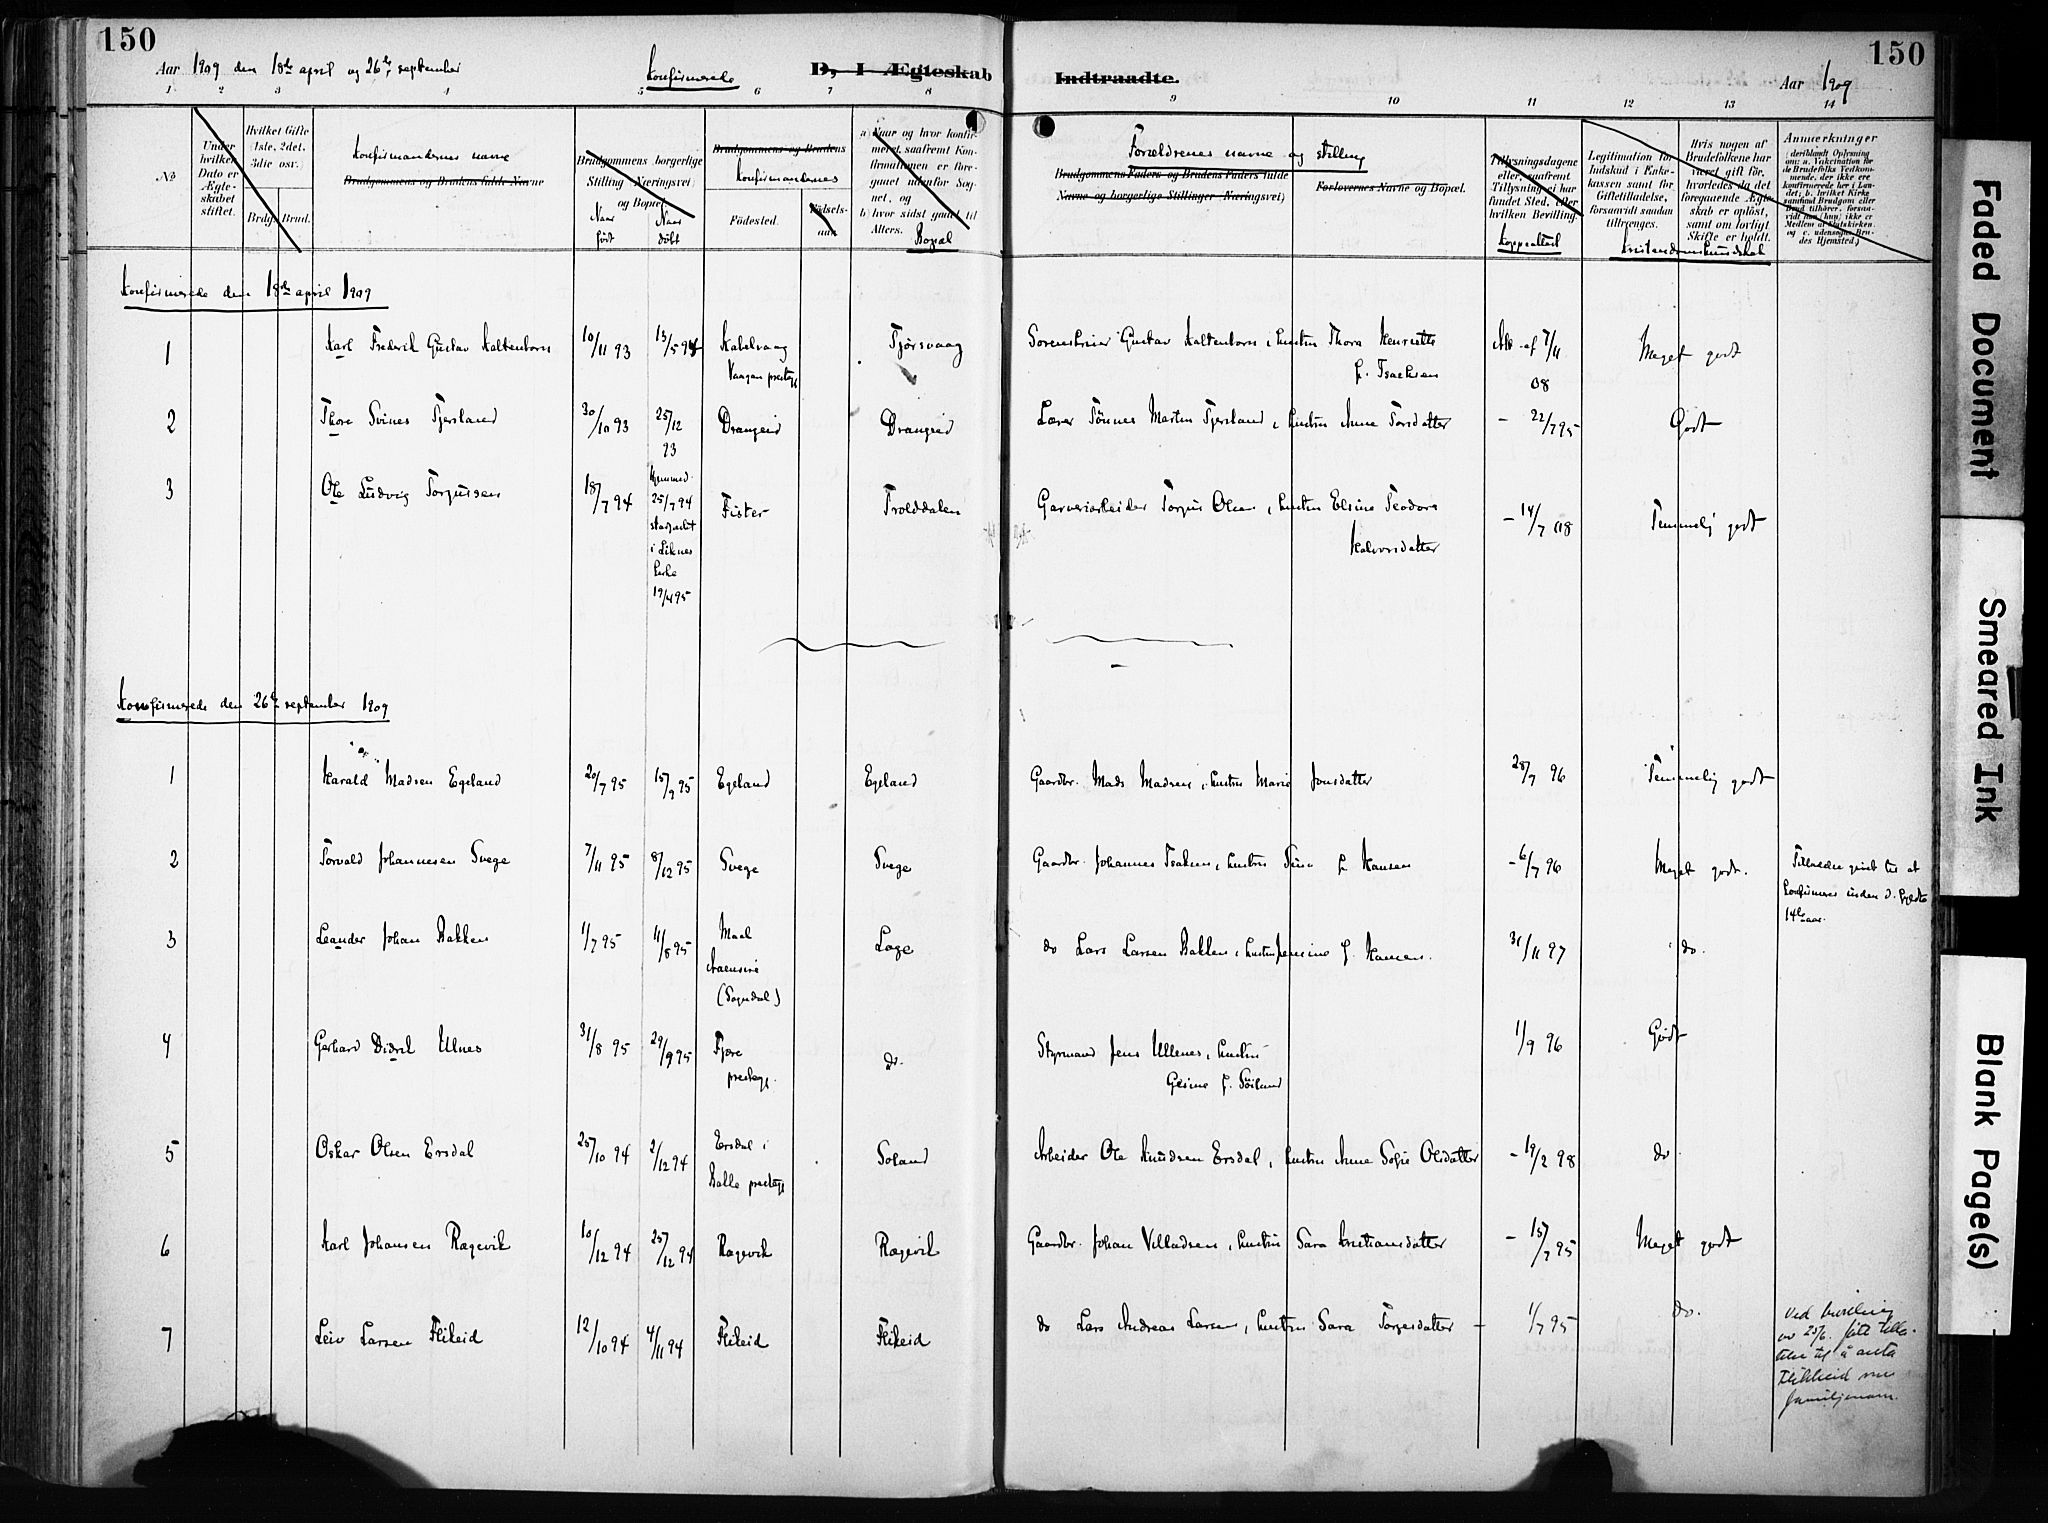 150
Aar 1909 den 18de april og 26de september
Konfirmerede D, I Ægteskab
Indtraadte.
Aar 1909
150
1 2 3 4 5 6 7 8 9 10 11 12 13 14
No
Under hvilken Dato er Ægteskabet stiftet.
Hvilket Gifte 1ste, 2det, 3die osv.
Brdg. Brud.
Konfirmandernes navne
Brudgommens og Brudens fulde Navne
Brudgommens borgerlige Stilling (Næringsvei) og Bopæl
Naar født
Naar døbt
Brudgommens og Brudens
Konfirmandernes
Fødested.
Fødselsaar
a) Naar og hvor konfirmeret, saafremt Konfirmationen er foregaaet udenfor Sognet, og
b) hvor sidst gaaet til Alters.
Bopæl
Forældrenes navne og stilling
Brudgommens Faders og Brudens Faders fulde Navne og borgerlige Stillinger (Næringsvei)
Forlovernes Navne og Bopæl.
Tillysningsdagene eller, saafremt Tillysning ei har fundet Sted, efter hvilken Bevilling.
Koppeattest
Legitimation for Indskud i Enkekassen samt for Giftetilladelse, forsaavidt saadan tiltrænges.
Hvis nogen af Brudefolkene har været gift før, hvorledes da det foregaaende Ægteskab er opløst, samt om lovligt Skifte er holdt.
Kristendomskundskab
Anmerkninger
(deriblandt Oplysning om: a. Vakcination for de Brudefolks Vedkommende, der ikke ere konfirmerede her i Landet; b. hvilket Kirkesamfund Brudgom eller Brud tilhører, forsaavidt han (hun) ikke er Medlem af Statskirken, og c. udensogns Brudes Hjemsted.)
Konfirmerede den 18de april 1909
1 Karl Frederik Gustav Kaltenborn 10/11 93 13/5 94 Kabelvaag Vaagan prestegj Tjørsvaag Sorenskriver Gustav Kaltenborn, hustru Thora Henriette f. Isachsen Att. af 7/11 08 Meget godt
2 Thore Svines Tjersland 30/10 93 25/12 93 Drangeid Drangeid Lærer Tønnes Martin Tjersland, hustru Anne Torsdatter - 22/7 95 Godt
3 Ole Ludvig Torgussen 18/7 94 Hjemmed. 25/7 94 stadfæstet i Liknes kirke 19/4 95 Fister Trolddalen Garveriarbeider Torgus Olsen, hustru Elsine Teodora Halvorsdatter - 14/7 08 Temmelig godt
Konfirmerede den 26de september 1909
1 Harald Madsen Egeland 20/7 95 15/9 95 Egeland Egeland Gaardbr. Mads Madsen, hustru Marie Jonsdatter 28/7 96 Temmelig godt
2 Torvald Johannesen Svege 7/11 95 8/12 95 Svege Svege Gaardbr. Johannes Isaksen, hustru Sina f. Hansen - 6/7 96 Meget godt. Tilladelse givet til at konfirmeres inden d. fyldte 14de aar.
3 Leander Johan Bakken 1/7 95 11/8 95 Maal Aaensire (Sogndal) Loge do Lars Larsen Bakken, hustru Jensine f. Hansen. 31/11 97 do.
4 Gerhard Didrik Ulnes 31/8 95 29/9 95 Fjære prestegj. do. Styrmand Jens Ullenes, hustru Gesine f. Söilund 1/9 96 Godt
5 Oskar Olsen Ersdal 25/10 94 2/12 94 Ersdal i Balke prestegj Soland Arbeider Ole Knudsen Ersdal, hustru Anne Sofie Olsdatter - 19/2 98 do
6 Karl Johansen Ragevik 10/12 94 25/12 94 Ragevik Ragevik Gaardbr. Johan Villadsen, hustru Sara Kristiansdatter - 15/7 95 Meget godt
7 Leiv Larsen Flikeid 12/10 94 4/11 94 Flikeid Flikeid do Lars Andreas Larsen, hustru Sara Torgesdatter - 1/7 95 do. Ved bevilling av 25/6. fått tillatelse til å anta Flikkeid som familjenavn.
Faded Document
Smeared Ink
Blank Page(s)